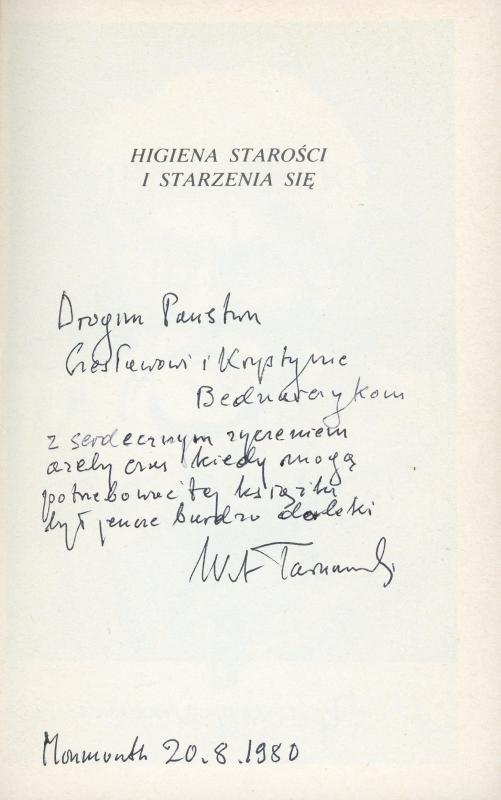 HIGIENA STAROŚCI
I STARZENIA SIĘ
Drogim Państwu
Czesławowi i Krystynie
Bednarczykom
z serdecznym życzeniem
ażeby czas kiedy mogą
potrzebować tej książki
był jeszcze bardzo daleki
Monmouth 20.8.1980